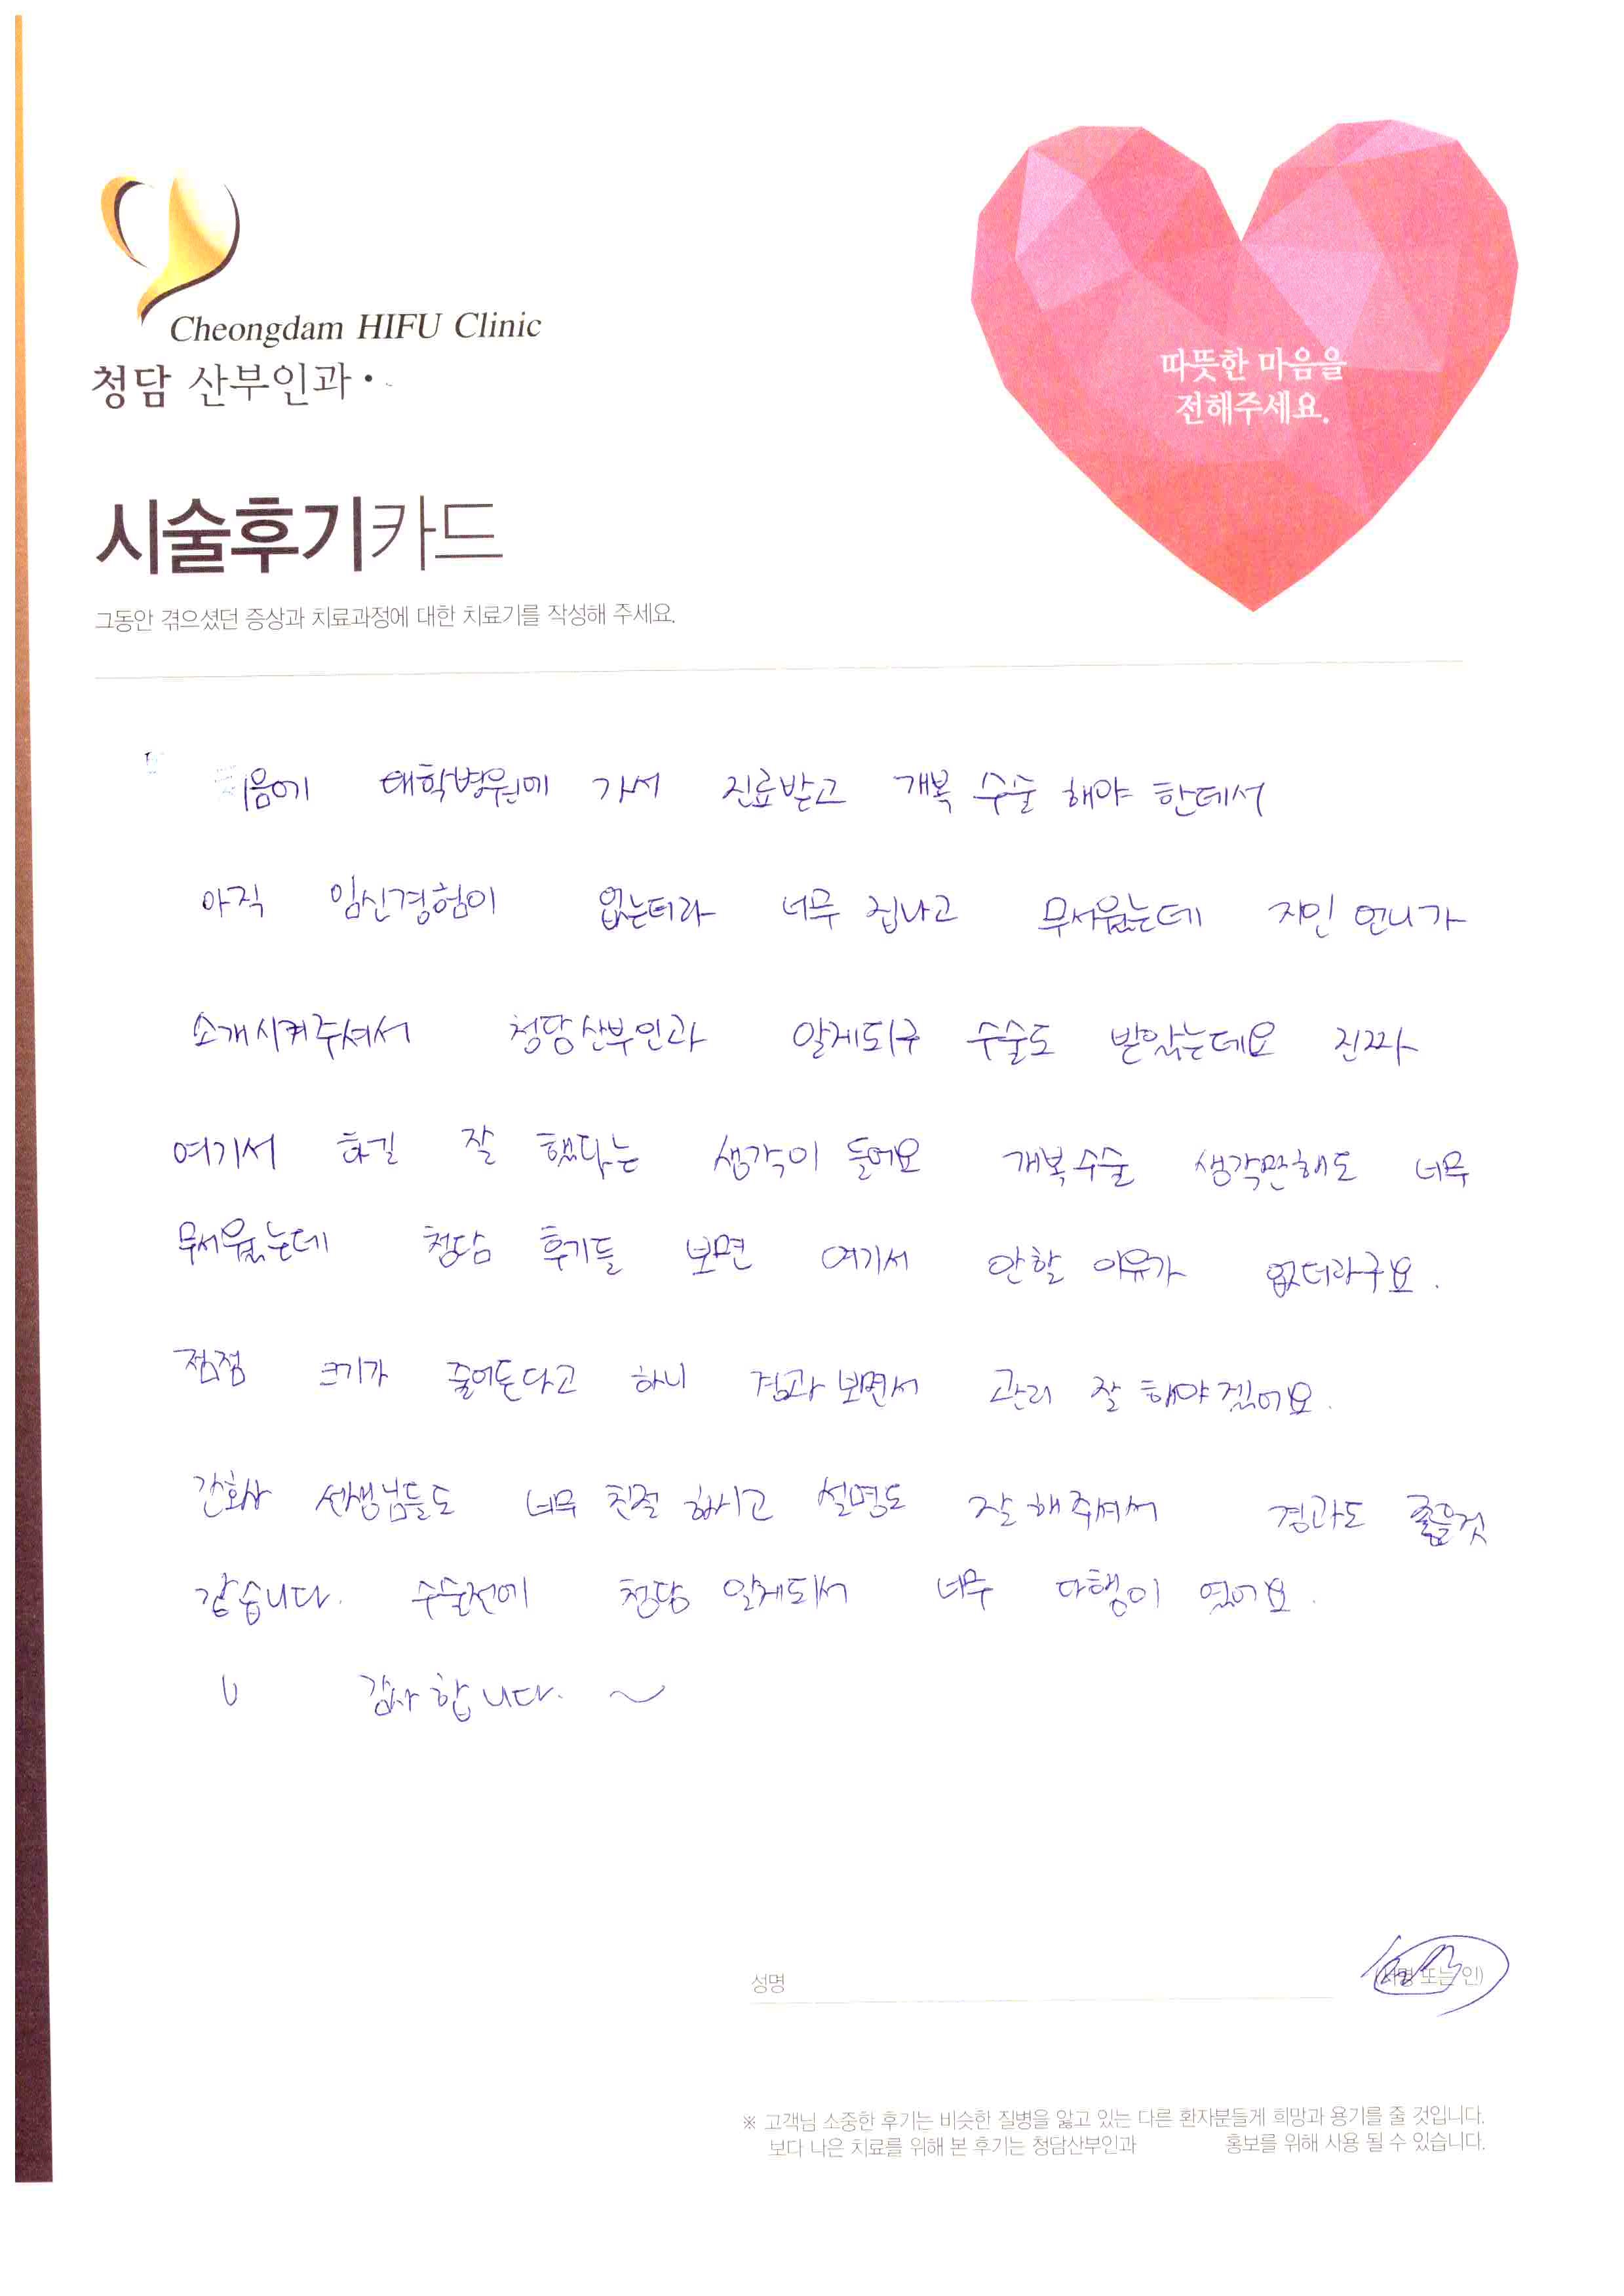 Cheongdam HIFU Clinic
청담 산부인과
따뜻한 마음을
전해주세요.
시술후기카드
그동안 겪으셨던 증상과 치료과정에 대한 치료기를 작성해 주세요.
처음에 대학병원에 가서 진료받고 개복 수술 해야 한데서
아직 임신경험이 없는터라 너무 겁나고 무서웠는데 지인 언니가
소개시켜주셔서 청담산부인과 알게되구 수술도 받았는데요 진짜
여기서 하길 잘 했다는 생각이 들어요 개복수술 생각만해도 너무
무서웠는데 청담 후기들 보면 여기서 안할 이유가 없더라구요.
점점 크기가 줄어든다고 하니 경과 보면서 관리 잘 해야겠어요.
간호사 선생님들도 너무 친절 하시고 설명도 잘 해주셔서 경과도 좋을것
같습니다. 수술전에 청담 알게되서 너무 다행이 였어요.
감사합니다. ~
성명 (서명 또는 인)
※ 고객님 소중한 후기는 비슷한 질병을 앓고 있는 다른 환자분들게 희망과 용기를 줄 것입니다.
보다 나은 치료를 위해 본 후기는 청담산부인과 홍보를 위해 사용 될 수 있습니다.